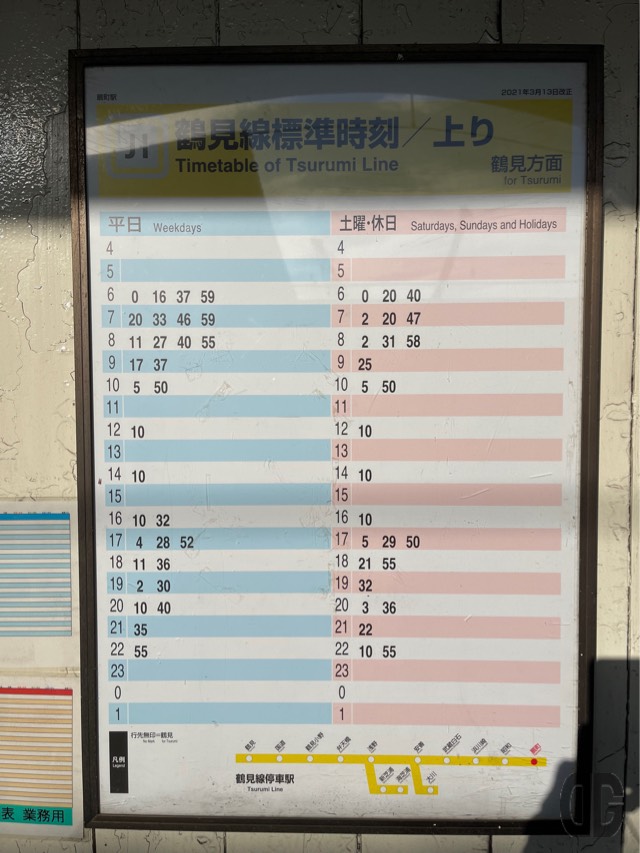 扇町駅
2021年3月13日改正
JI
鶴見線標準時刻／上り
Timetable of Tsurumi Line
鶴見方面
for Tsurumi
平日 Weekdays
土曜・休日 Saturdays, Sundays and Holidays
4 4
5 5
6 0 16 37 59 6 0 20 40
7 20 33 46 59 7 2 20 47
8 11 27 40 55 8 2 31 58
9 17 37 9 25
10 5 50 10 5 50
11 11
12 10 12 10
13 13
14 10 14 10
15 15
16 10 32 16 10
17 4 28 52 17 5 29 50
18 11 36 18 21 55
19 2 30 19 32
20 10 40 20 3 36
21 35 21 22
22 55 22 10 55
23 23
0 0
1 1
凡例
Legend
行先無印=鶴見
No Mark for Tsurumi
鶴見 国道 鶴見小野 弁天橋 浅野 安善 武蔵白石 浜川崎 昭和 扇町
新芝浦 海芝浦 大川
鶴見線停車駅
Tsurumi Line
表 業務用
DG